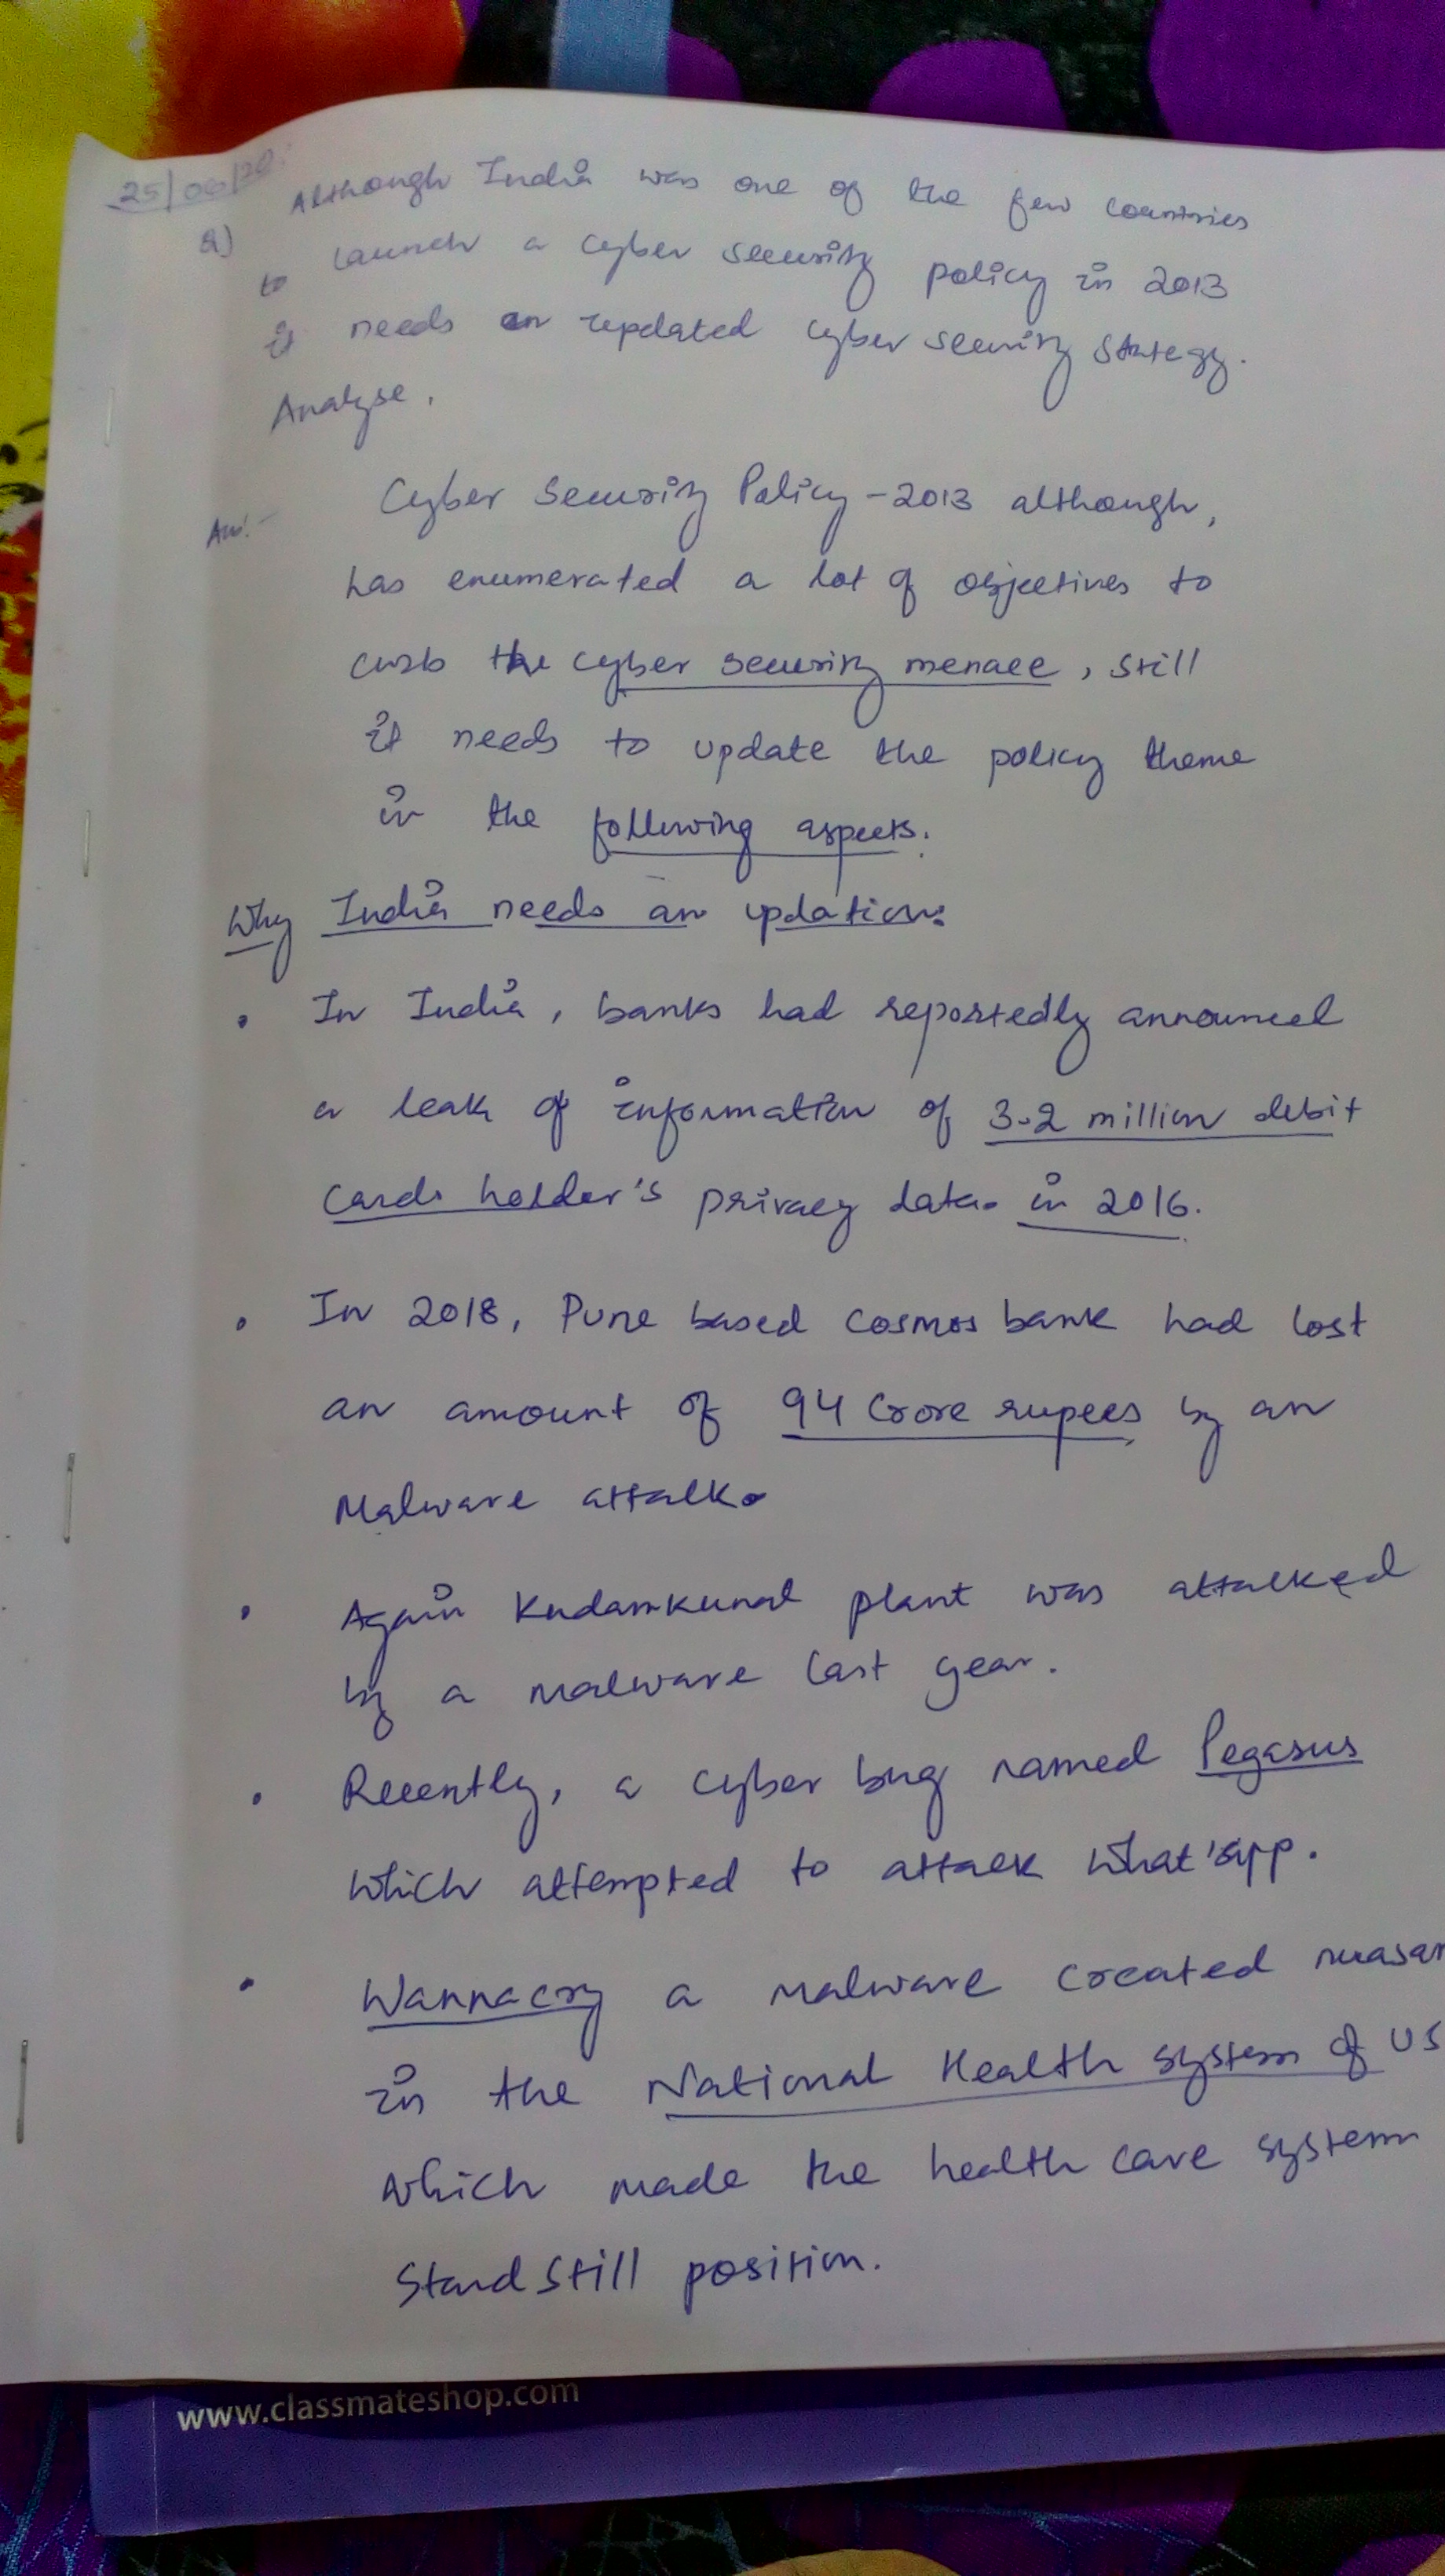 25/06/20
Q) Although India was one of the few countries
to launch a cyber security policy in 2013
it needs an updated cyber security strategy.
Analyse.
Ans:- Cyber Security Policy - 2013 although,
has enumerated a lot of objectives to
curb the cyber security menace, still
it needs to update the policy theme
in the following aspects.
Why India needs an updation:
• In India, banks had reportedly announced
a leak of information of 3.2 million debit
cards holder's privacy data. in 2016.
• In 2018, Pune based cosmos bank had lost
an amount of 94 Crore rupees by an
Malware attack.
• Again Kudankunal plant was attacked
by a malware last year.
• Recently, a cyber bug named Pegasus
which attempted to attack What'sapp.
• Wannacry a malware created
in the National Health system of US
which made the health care system
Stand Still position.
www.classmateshop.com